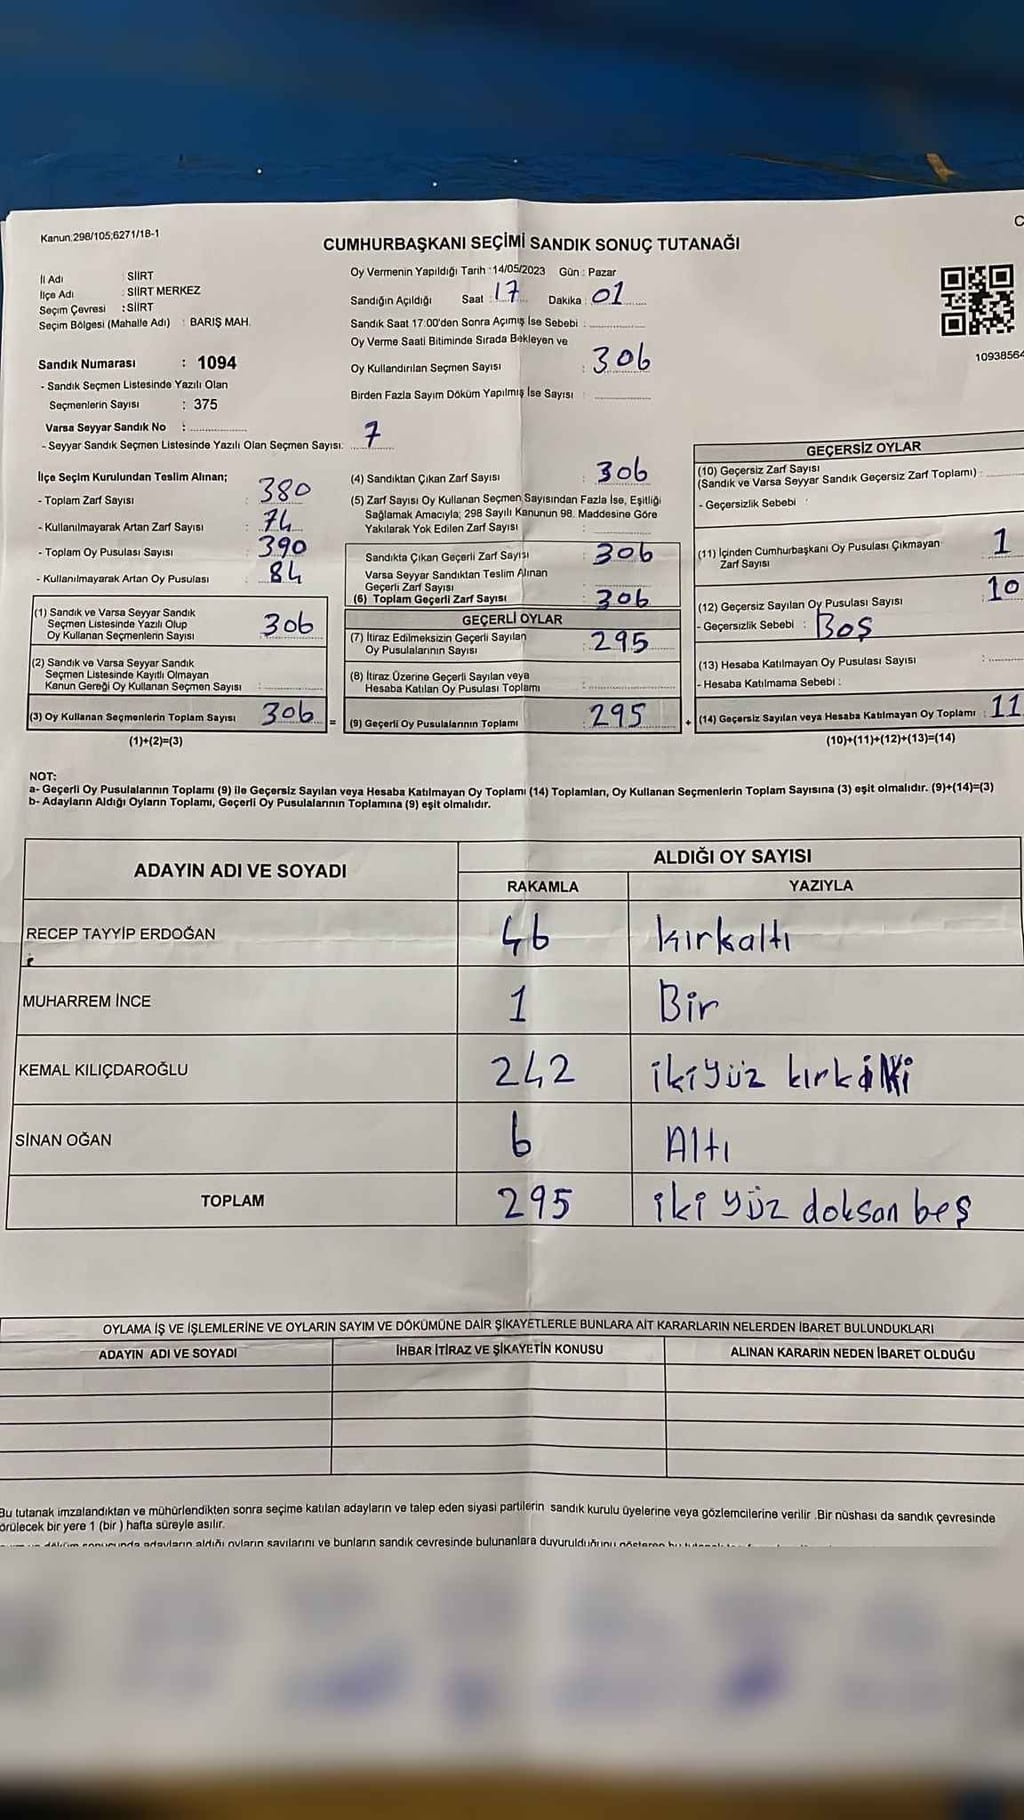 Kanun.298/105;6271/18-1
CUMHURBAŞKANI SEÇİMİ SANDIK SONUÇ TUTANAĞI
İl Adı : SİİRT
İlçe Adı : SİİRT MERKEZ
Seçim Çevresi : SİİRT
Seçim Bölgesi (Mahalle Adı) : BARIŞ MAH.
Sandık Numarası : 1094
- Sandık Seçmen Listesinde Yazılı Olan
Seçmenlerin Sayısı : 375
Varsa Seyyar Sandık No :
- Seyyar Sandık Seçmen Listesinde Yazılı Olan Seçmen Sayısı: 7
Oy Vermenin Yapıldığı Tarih : 14/05/2023 Gün : Pazar
Sandığın Açıldığı Saat : 17 Dakika : 01
Sandık Saat 17:00'den Sonra Açımış İse Sebebi :
Oy Verme Saati Bitiminde Sırada Bekleyen ve
Oy Kullandırılan Seçmen Sayısı : 306
Birden Fazla Sayım Döküm Yapılmış İse Sayısı :
10938564
İlçe Seçim Kurulundan Teslim Alınan;
- Toplam Zarf Sayısı : 380
- Kullanılmayarak Artan Zarf Sayısı : 74
- Toplam Oy Pusulası Sayısı : 390
- Kullanılmayarak Artan Oy Pusulası : 84
(1) Sandık ve Varsa Seyyar Sandık
Seçmen Listesinde Yazılı Olup
Oy Kullanan Seçmenlerin Sayısı : 306
(2) Sandık ve Varsa Seyyar Sandık
Seçmen Listesinde Kayıtlı Olmayan
Kanun Gereği Oy Kullanan Seçmen Sayısı :
(3) Oy Kullanan Seçmenlerin Toplam Sayısı : 306 =
(1)+(2)=(3)
(4) Sandıktan Çıkan Zarf Sayısı : 306
(5) Zarf Sayısı Oy Kullanan Seçmen Sayısından Fazla İse, Eşitliği
Sağlamak Amacıyla; 298 Sayılı Kanunun 98. Maddesine Göre
Yakılarak Yok Edilen Zarf Sayısı :
Sandıkta Çıkan Geçerli Zarf Sayısı : 306
Varsa Seyyar Sandıktan Teslim Alınan
Geçerli Zarf Sayısı :
(6) Toplam Geçerli Zarf Sayısı : 306
GEÇERLİ OYLAR
(7) İtiraz Edilmeksizin Geçerli Sayılan
Oy Pusulalarının Sayısı : 295
(8) İtiraz Üzerine Geçerli Sayılan veya
Hesaba Katılan Oy Pusulası Toplamı :
(9) Geçerli Oy Pusulalarının Toplamı : 295 +
GEÇERSİZ OYLAR
(10) Geçersiz Zarf Sayısı
(Sandık ve Varsa Seyyar Sandık Geçersiz Zarf Toplamı) :
- Geçersizlik Sebebi :
(11) İçinden Cumhurbaşkanı Oy Pusulası Çıkmayan
Zarf Sayısı : 1
(12) Geçersiz Sayılan Oy Pusulası Sayısı : 10
- Geçersizlik Sebebi : Boş
(13) Hesaba Katılmayan Oy Pusulası Sayısı :
- Hesaba Katılmama Sebebi :
(14) Geçersiz Sayılan veya Hesaba Katılmayan Oy Toplamı : 11
(10)+(11)+(12)+(13)=(14)
NOT:
a- Geçerli Oy Pusulalarının Toplamı (9) ile Geçersiz Sayılan veya Hesaba Katılmayan Oy Toplamı (14) Toplamları, Oy Kullanan Seçmenlerin Toplam Sayısına (3) eşit olmalıdır. (9)+(14)=(3)
b- Adayların Aldığı Oyların Toplamı, Geçerli Oy Pusulalarının Toplamına (9) eşit olmalıdır.
ADAYIN ADI VE SOYADI ALDIĞI OY SAYISI
RAKAMLA YAZIYLA
RECEP TAYYİP ERDOĞAN 46 kırkaltı
MUHARREM İNCE 1 Bir
KEMAL KILIÇDAROĞLU 242 ikiyüz kırkiki
SİNAN OĞAN 6 Altı
TOPLAM 295 iki yüz doksan beş
OYLAMA İŞ VE İŞLEMLERİNE VE OYLARIN SAYIM VE DÖKÜMÜNE DAİR ŞİKAYETLERLE BUNLARA AİT KARARLARIN NELERDEN İBARET BULUNDUKLARI
ADAYIN ADI VE SOYADI İHBAR İTİRAZ VE ŞİKAYETİN KONUSU ALINAN KARARIN NEDEN İBARET OLDUĞU
Bu tutanak imzalandıktan ve mühürlendikten sonra seçime katılan adayların ve talep eden siyasi partilerin sandık kurulu üyelerine veya gözlemcilerine verilir .Bir nüshası da sandık çevresinde
örülecek bir yere 1 (bir ) hafta süreyle asılır.
döküm sonucunda adayların aldığı oyların sayılarını ve bunların sandık çevresinde bulunanlara duyurulduğunu gösteren bu